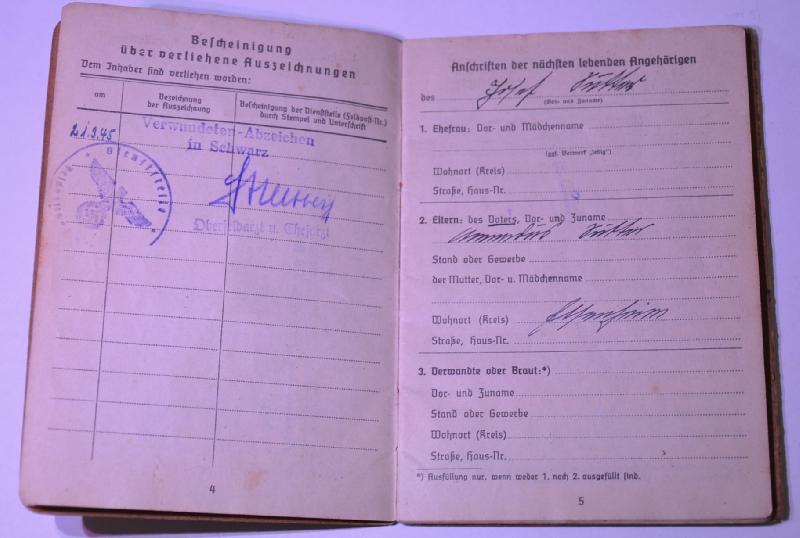 Bescheinigung
über verliehene Auszeichnungen
Dem Inhaber sind verliehen worden:
am
Bezeichnung
der Auszeichnung
Bescheinigung der Dienststelle (Feldpost-Nr.)
durch Stempel und Unterschrift
21.3.45
Verwundeten-Abzeichen
in Schwarz
Dienststelle
Oberfeldarzt u. Chefarzt
4
Anschriften der nächsten lebenden Angehörigen
des Josef Sutter
(Vor- und Zuname)
1. Ehefrau: Vor- und Mädchenname
(ggf. Vermerk „ledig")
Wohnort (Kreis)
Straße, Haus-Nr.
2. Eltern: des Vaters, Vor- und Zuname
Sutter
Stand oder Gewerbe
der Mutter, Vor- u. Mädchenname
Wohnort (Kreis)
Straße, Haus-Nr.
3. Verwandte oder Braut:*)
Vor- und Zuname
Stand oder Gewerbe
Wohnort (Kreis)
Straße, Haus-Nr.
*) Ausfüllung nur, wenn weder 1. noch 2. ausgefüllt sind.
5